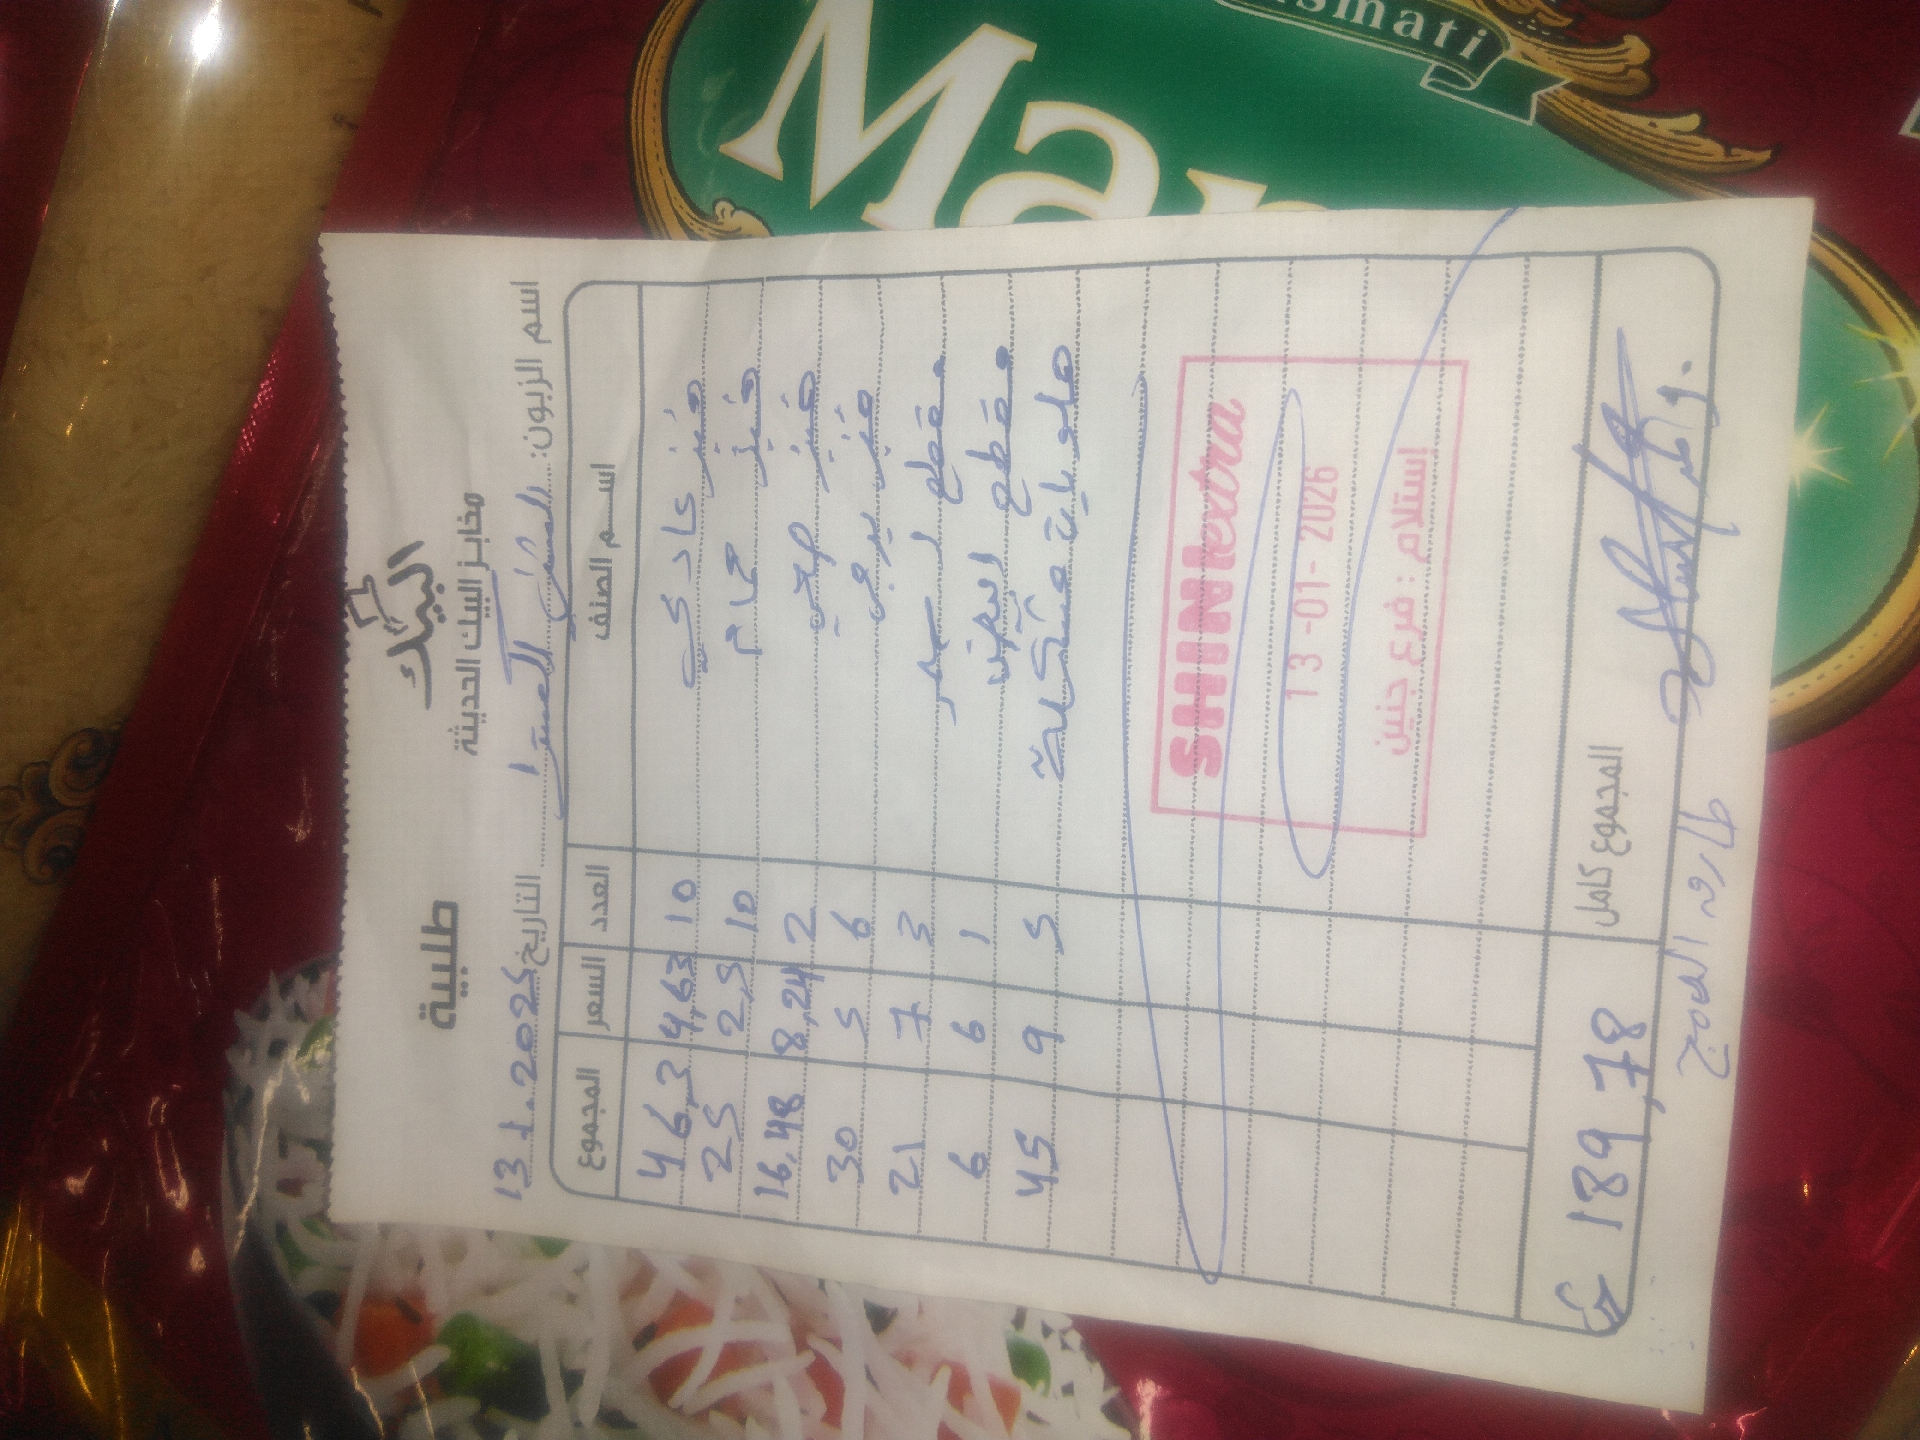 smati
Mar
البيك
مخابز البيك الحديثة
طلبية
اسم الزبون:
التاريخ 13.1.2025
اسم الصنف العدد السعر المجموع
خبز عادي 10 4,63 46,3
خبز حمام 10 2,5 25
خبز صحي 2 8,24 16,48
خبز بيرجر 6 5 30
مقطع اسمر 3 7 21
مقطع 1 6 6
حلويات مشكلة 5 9 45
SHINI extra
13-01-2026
إستلام : فرع جنين
المجموع كامل 189,78